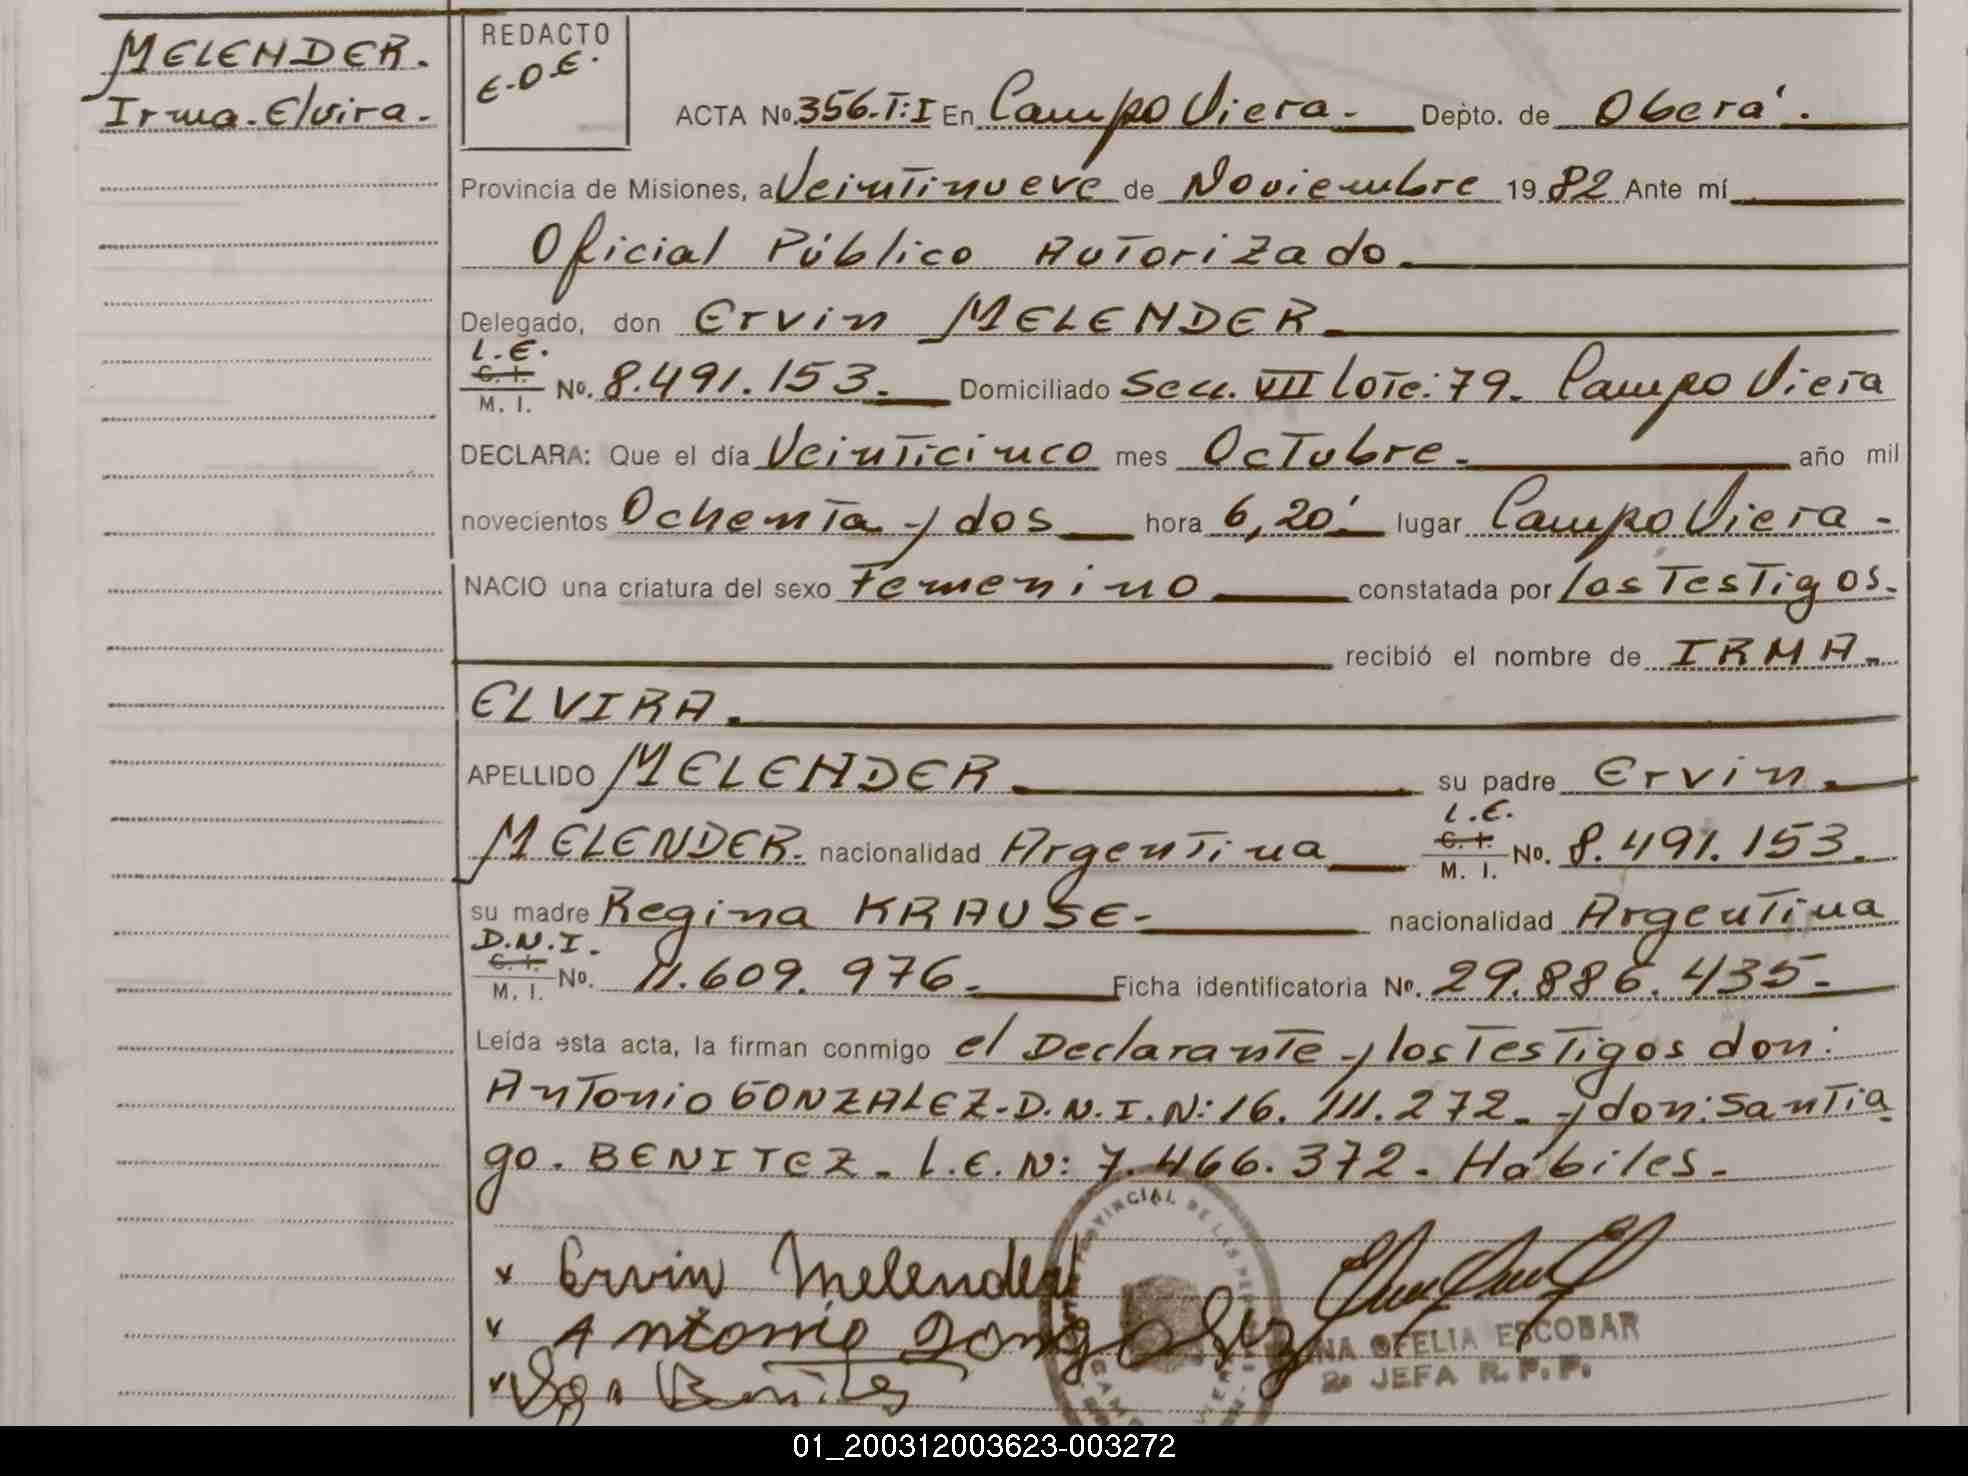 MELENDER.
Irma. Elvira.
REDACTO
E.O.E.
ACTA Nº.356.T:I En Campo Viera. Depto. de Oberá.
Provincia de Misiones, a Veintinueve de Noviembre 19 82 Ante mí
Oficial Público Autorizado.
Delegado, don Ervin MELENDER
L.E.
C. I.
M. I. Nº. 8.491.153. Domiciliado Secc. VII Lote: 79. Campo Viera
DECLARA: Que el día Veinticinco mes Octubre. año mil
novecientos Ochenta y dos hora 6,20' lugar Campo Viera -
NACIO una criatura del sexo Femenino constatada por los Testigos.
recibió el nombre de IRMA.
ELVIRA.
APELLIDO MELENDER su padre Ervin.
L.E.
MELENDER. nacionalidad Argentina C. I. Nº. 8.491.153.
M. I.
su madre Regina KRAUSE- nacionalidad Argentina
D.N.I.
C. I.
M. I. Nº. 11.609.976. Ficha identificatoria Nº. 29.886.435-
Leída esta acta, la firman conmigo el Declarante y los Testigos don:
Antonio GONZALEZ-D.N.I.N:16.111.272. y don: Santia
go. BENITEZ. L.E. N: 7.466.372. Hábiles.
Ervin Melender
Antonio Gonzalez
Benites
PROVINCIAL DE LAS PER
NA OFELIA ESCOBAR
2ª JEFA R.P.P.
01_200312003623-003272